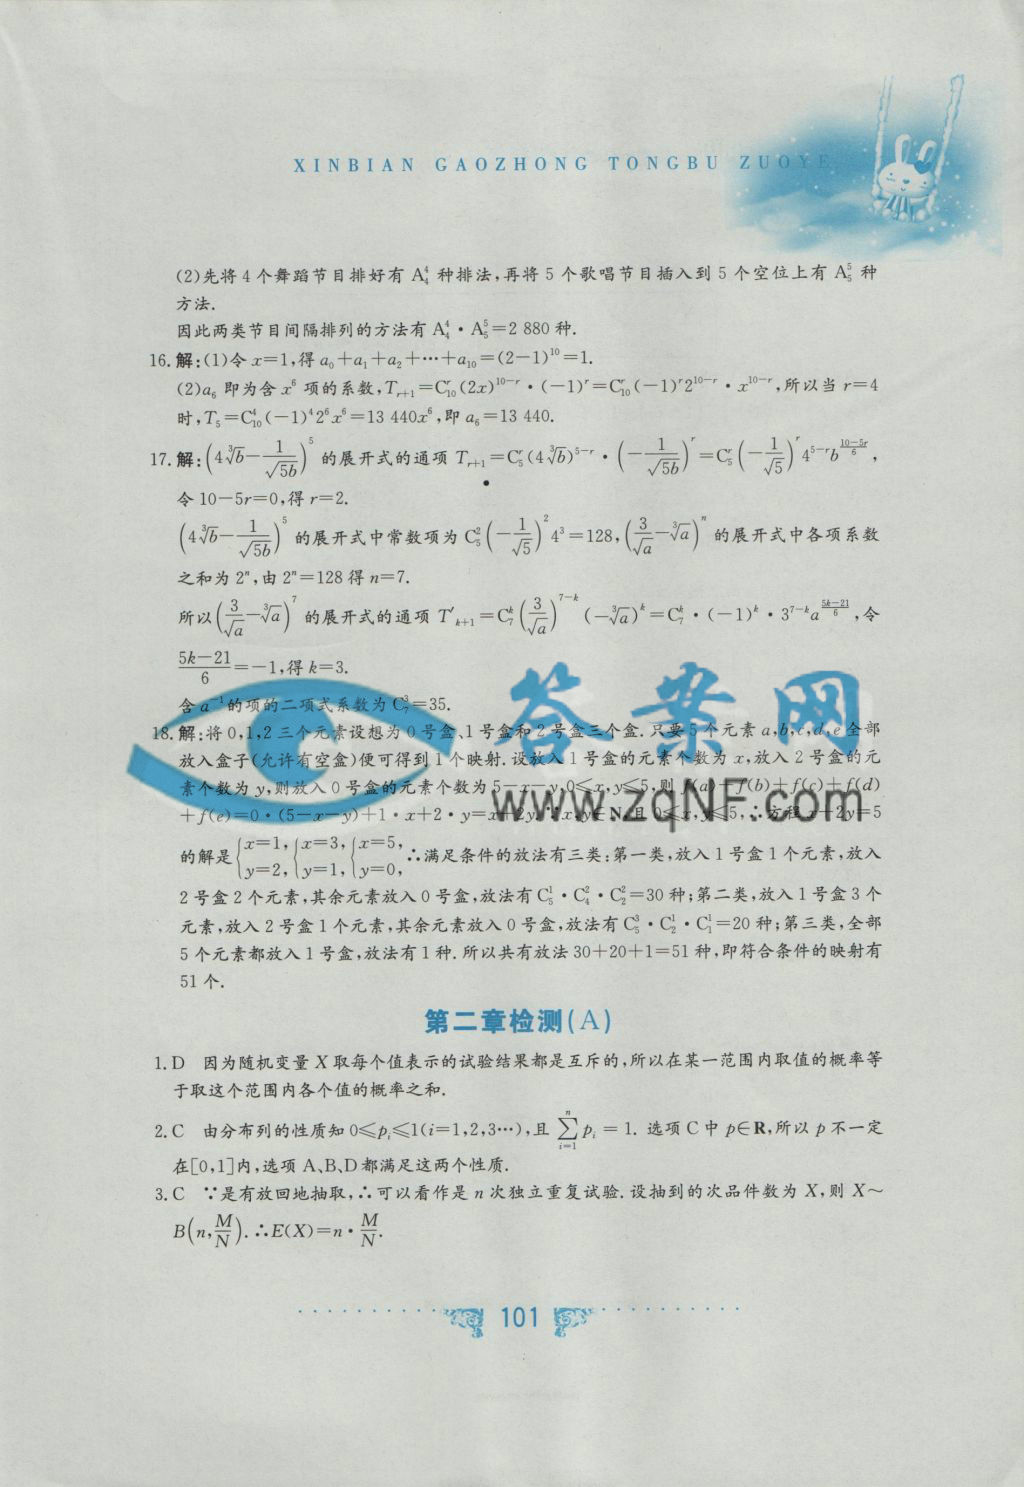 XINBIAN GAOZHONG TONGBU ZUOYE
(2)先将 4 个舞蹈节目排好有 A₄⁴ 种排法,再将 5 个歌唱节目插入到 5 个空位上有 A₅⁵ 种
方法.
因此两类节目间隔排列的方法有 A₄⁴·A₅⁵=2 880 种.
16.解:(1)令 x=1,得 a₀+a₁+a₂+···+a₁₀=(2-1)¹⁰=1.
(2)a₆ 即为含 x⁶ 项的系数,Tᵣ₊₁=C₁₀ʳ(2x)¹⁰⁻ʳ·(-1)ʳ=C₁₀ʳ(-1)ʳ2¹⁰⁻ʳ·x¹⁰⁻ʳ,所以当 r=4
时,T₅=C₁₀⁴(-1)⁴2⁶x⁶=13 440x⁶,即 a₆=13 440.
17.解:(4∛b-1/√(5b))⁵ 的展开式的通项 Tᵣ₊₁=C₅ʳ(4∛b)⁵⁻ʳ·(-1/√(5b))ʳ=C₅ʳ(-1/√5)ʳ4⁵⁻ʳb^((10-5r)/6),
令 10-5r=0,得 r=2.
(4∛b-1/√(5b))⁵ 的展开式中常数项为 C₅²(-1/√5)²4³=128,(3/√a-∛a)ⁿ 的展开式中各项系数
之和为 2ⁿ,由 2ⁿ=128 得 n=7.
所以(3/√a-∛a)⁷ 的展开式的通项 T′ₖ₊₁=C₇ᵏ(3/√a)⁷⁻ᵏ(-∛a)ᵏ=C₇ᵏ·(-1)ᵏ·3⁷⁻ᵏa^((5k-21)/6),令
(5k-21)/6=-1,得 k=3.
含 a⁻¹的项的二项式系数为 C₇³=35.
18.解:将 0,1,2 三个元素设想为 0 号盒、1 号盒和 2 号盒三个盒.只要 5 个元素 a,b,c,d,e 全部
放入盒子(允许有空盒)便可得到 1 个映射.设放入 1 号盒的元素个数为 x,放入 2 号盒的元
素个数为 y,则放入 0 号盒的元素个数为 5-x-y,0≤x,y≤5,则 f(a)+f(b)+f(c)+f(d)
+f(e)=0·(5-x-y)+1·x+2·y=x+2y.∵x,y∈N,且 0≤x,y≤5,∴方程 x+2y=5
的解是{x=1, y=2, {x=3, y=1, {x=5, y=0, ∴满足条件的放法有三类:第一类,放入 1 号盒 1 个元素,放入
2 号盒 2 个元素,其余元素放入 0 号盒,放法有 C₅¹·C₄²·C₂²=30 种;第二类,放入 1 号盒 3 个
元素,放入 2 号盒 1 个元素,其余元素放入 0 号盒,放法有 C₅³·C₂¹·C₁¹=20 种;第三类,全部
5 个元素都放入 1 号盒,放法有 1 种.所以共有放法 30+20+1=51 种,即符合条件的映射有
51 个.
答案网
www.zqNF.com
第二章检测(A)
1.D 因为随机变量 X 取每个值表示的试验结果都是互斥的,所以在某一范围内取值的概率等
于取这个范围内各个值的概率之和.
2.C 由分布列的性质知 0≤pᵢ≤1(i=1,2,3···),且 ∑ⁿᵢ₌₁ pᵢ = 1. 选项 C 中 p∈R,所以 p 不一定
在[0,1]内,选项 A、B、D 都满足这两个性质.
3.C ∵是有放回地抽取,∴可以看作是 n 次独立重复试验.设抽到的次品件数为 X,则 X~
B(n,M/N).∴E(X)=n·M/N.
101